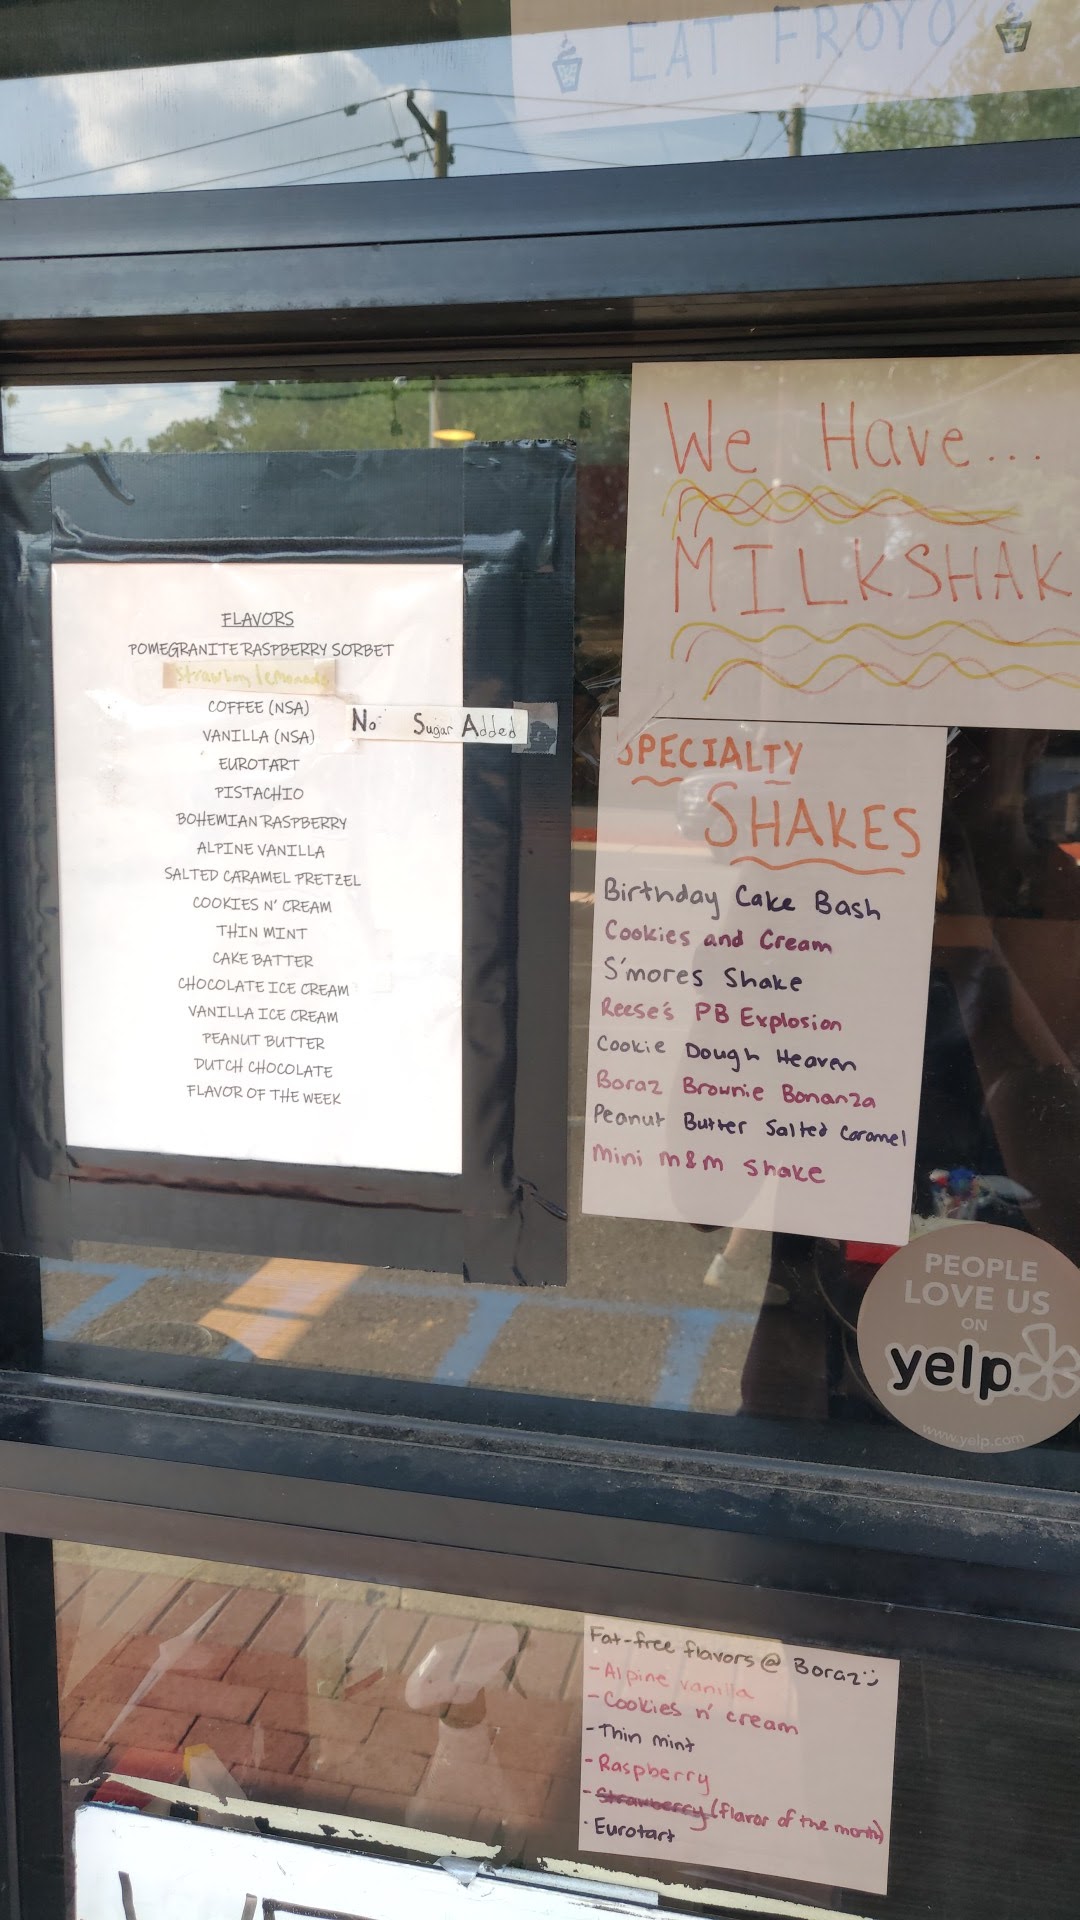 EAT FROYO
We Have...
MILKSHAK
FLAVORS
POMEGRANITE RASPBERRY SORBET
Strawbrry lemonade
COFFEE (NSA)
No Sugar Added
VANILLA (NSA)
EUROTART
PISTACHIO
BOHEMIAN RASPBERRY
ALPINE VANILLA
SALTED CARAMEL PRETZEL
COOKIES N' CREAM
THIN MINT
CAKE BATTER
CHOCOLATE ICE CREAM
VANILLA ICE CREAM
PEANUT BUTTER
DUTCH CHOCOLATE
FLAVOR OF THE WEEK
SPECIALTY
SHAKES
Birthday Cake Bash
Cookies and Cream
S'mores Shake
Reese's PB Explosion
Cookie Dough Heaven
Boraz Brownie Bonanza
Peanut Butter Salted Caramel
Mini M&M Shake
PEOPLE
LOVE US
ON
yelp
www.yelp.com
Fat-free flavors @ Boraz :)
- Alpine vanilla
- Cookies n' cream
- Thin mint
- Raspberry
- Strawberry (flavor of the month)
· Eurotart